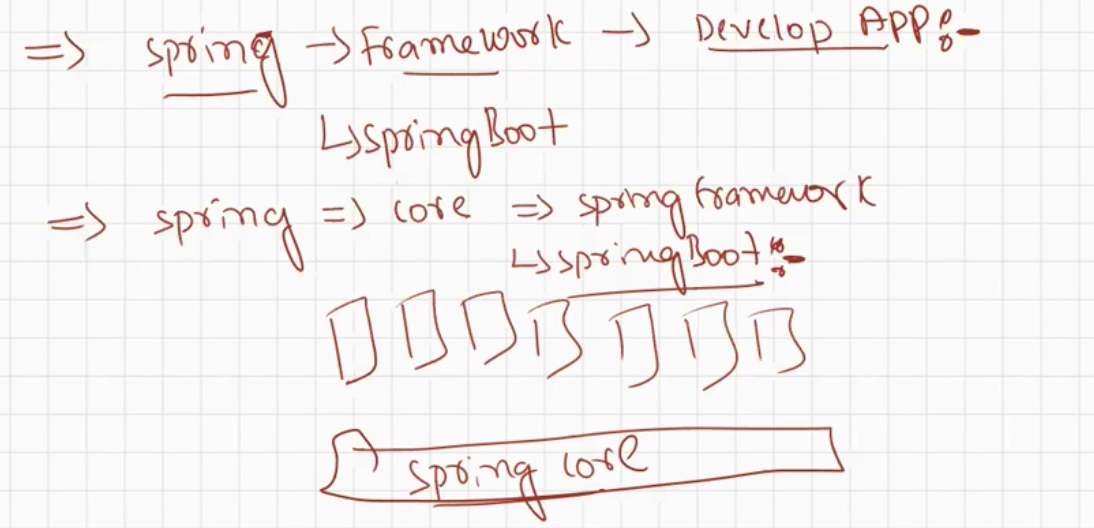 => spring → Framework → Develop APP:-
↳ springBoot
=> spring => core => spring framework
↳ springBoot:-
spring core